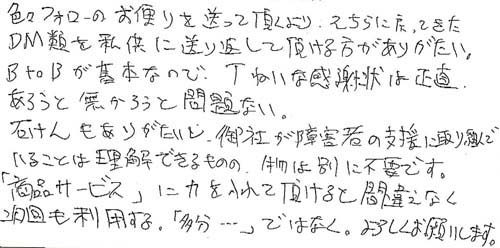 色々フォローのお便りを送って頂くより、そちらに戻ってきた
DM類を私供に送り返して頂ける方がありがたい。
BtoBが基本なので、丁ねいな感謝状は正直
あろうと無かろうと問題ない。
石けんもありがたいし、御社が障害者の支援に取り組んで
いることは理解できるものの、 は別に不要です。
「商品サービス」に力を入れて頂けると間違えなく
次回も利用する。「多分…」ではなく。よろしくお願いします。